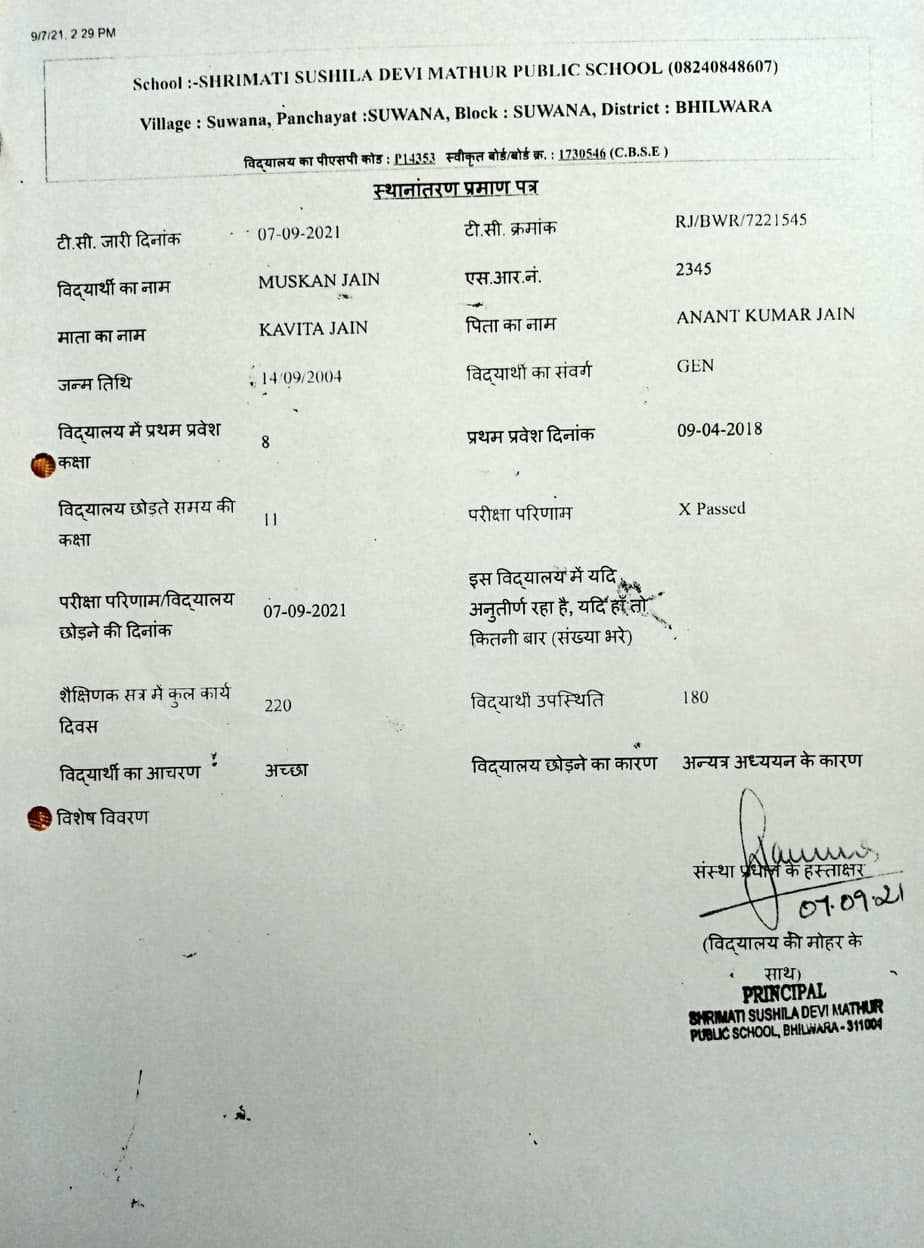 9/7/21, 2 29 PM
School :-SHRIMATI SUSHILA DEVI MATHUR PUBLIC SCHOOL (08240848607)
Village : Suwana, Panchayat :SUWANA, Block : SUWANA, District : BHILWARA
विद्यालय का पीएसपी कोड : P14353 स्वीकृत बोर्ड/बोर्ड क्र. : 1730546 (C.B.S.E )
स्थानांतरण प्रमाण पत्र
टी.सी. जारी दिनांक 07-09-2021 टी.सी. क्रमांक RJ/BWR/7221545
विद्यार्थी का नाम MUSKAN JAIN एस.आर.नं. 2345
माता का नाम KAVITA JAIN पिता का नाम ANANT KUMAR JAIN
जन्म तिथि 14/09/2004 विद्यार्थी का संवर्ग GEN
विद्यालय में प्रथम प्रवेश
कक्षा 8 प्रथम प्रवेश दिनांक 09-04-2018
विद्यालय छोड़ते समय की
कक्षा 11 परीक्षा परिणाम X Passed
परीक्षा परिणाम/विद्यालय
छोड़ने की दिनांक 07-09-2021
इस विद्यालय में यदि
अनुतीर्ण रहा है, यदि हाँ तो
कितनी बार (संख्या भरे)
शैक्षिणक सत्र में कुल कार्य
दिवस 220 विद्यार्थी उपस्थिति 180
विद्यार्थी का आचरण अच्छा विद्यालय छोड़ने का कारण अन्यत्र अध्ययन के कारण
विशेष विवरण
संस्था प्रधान के हस्ताक्षर
07.09.21
(विद्यालय की मोहर के
साथ)
PRINCIPAL
SHRIMATI SUSHILA DEVI MATHUR
PUBLIC SCHOOL, BHILWARA - 311004